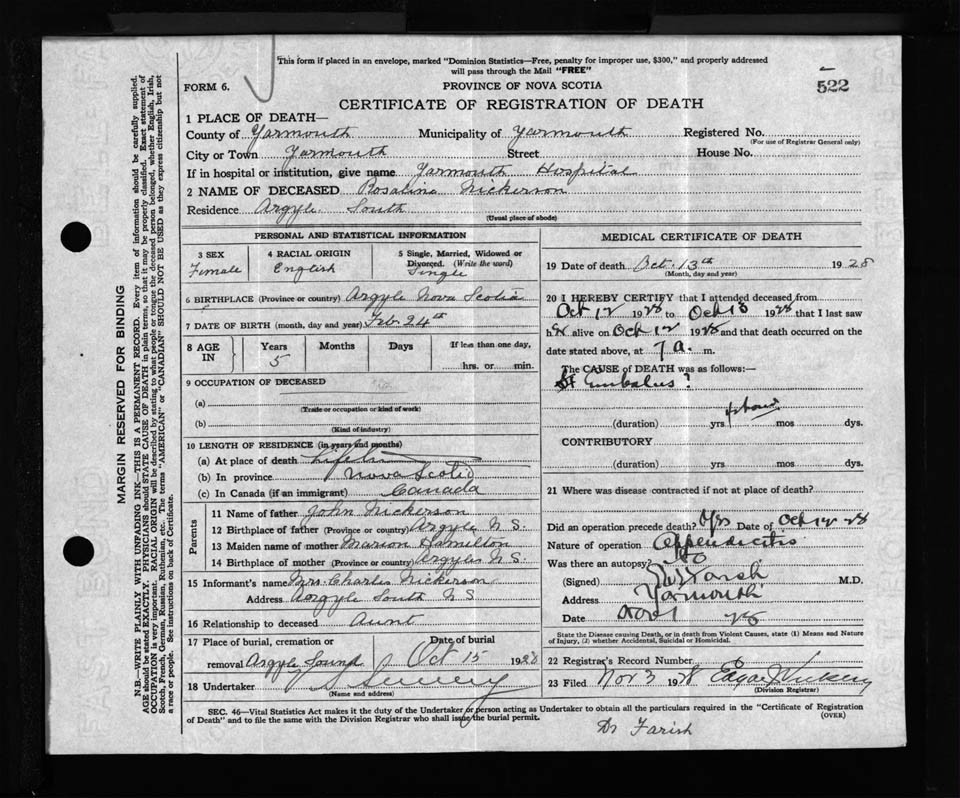 This form if placed in an envelope, marked "Dominion Statistics—Free, penalty for improper use, $300," and properly addressed
will pass through the Mail "FREE"
FORM 6.
PROVINCE OF NOVA SCOTIA
522
CERTIFICATE OF REGISTRATION OF DEATH
1 PLACE OF DEATH—
County of Yarmouth Municipality of Yarmouth Registered No.
(For use of Registrar General only)
City or Town Yarmouth Street House No.
If in hospital or institution, give name Yarmouth Hospital
2 NAME OF DECEASED Rosaline Nickerson
Residence Argyle South
(Usual place of abode)
PERSONAL AND STATISTICAL INFORMATION
3 SEX 4 RACIAL ORIGIN 5 Single, Married, Widowed or
Divorced. (Write the word)
Female English Single
6 BIRTHPLACE (Province or country) Argyle Nova Scotia
7 DATE OF BIRTH (month, day and year) Feb 24th
8 AGE IN Years Months Days If less than one day,
5 hrs. or min.
9 OCCUPATION OF DECEASED
(a)
(Trade or occupation or kind of work)
(b)
(Kind of industry)
10 LENGTH OF RESIDENCE (in years and months)
(a) At place of death Life
(b) In province Nova Scotia
(c) In Canada (if an immigrant) Canada
Parents
11 Name of father John Nickerson
12 Birthplace of father (Province or country) Argyle N S.
13 Maiden name of mother Marion Hamilton
14 Birthplace of mother (Province or country) Argyle N.S.
15 Informant's name Mrs. Charles Nickerson
Address Argyle South N S
16 Relationship to deceased Aunt
17 Place of burial, cremation or Date of burial
removal Argyle Sound Oct 15 1928
18 Undertaker Sweeny
(Name and address)
MEDICAL CERTIFICATE OF DEATH
19 Date of death Oct. 13th 1928
(Month, day and year)
20 I HEREBY CERTIFY that I attended deceased from
Oct 12 1928 to Oct 13 1928 that I last saw
her alive on Oct 12 1928 and that death occurred on the
date stated above, at 7 a. m.
The CAUSE of DEATH was as follows:—
Embolus?
(duration) yrs. mos dys.
CONTRIBUTORY
(duration) yrs mos dys.
21 Where was disease contracted if not at place of death?
Did an operation precede death? Yes Date of Oct 12 28
Nature of operation Appendicitis
Was there an autopsy? No
(Signed) Farish M.D.
Address Yarmouth
Date Nov 1 28
State the Disease causing Death, or in death from Violent Causes, state (1) Means and Nature
of Injury, (2) whether Accidental, Suicidal or Homicidal.
22 Registrar's Record Number
23 Filed Nov 3 1928 Edgar
(Division Registrar)
SEC. 46—Vital Statistics Act makes it the duty of the Undertaker or person acting as Undertaker to obtain all the particulars required in the "Certificate of Registration
of Death" and to file the same with the Division Registrar who shall issue the burial permit.
(OVER)
Dr Farish
MARGIN RESERVED FOR BINDING
N.B.—WRITE PLAINLY WITH UNFADING INK—THIS IS A PERMANENT RECORD. Every item of information should be carefully supplied.
AGE should be stated EXACTLY. PHYSICIANS should STATE CAUSE OF DEATH in plain terms, so that it may be properly classified. Exact statement of
OCCUPATION is very important. RACIAL ORIGIN will be described by stating to what people or tongue the deceased person belonged, whether English, Irish,
Scotch, French, German, Russian, Ruthenian, etc. The terms "AMERICAN" or "CANADIAN" SHOULD NOT BE USED as they express citizenship but not
a race or people. See instructions on back of Certificate.